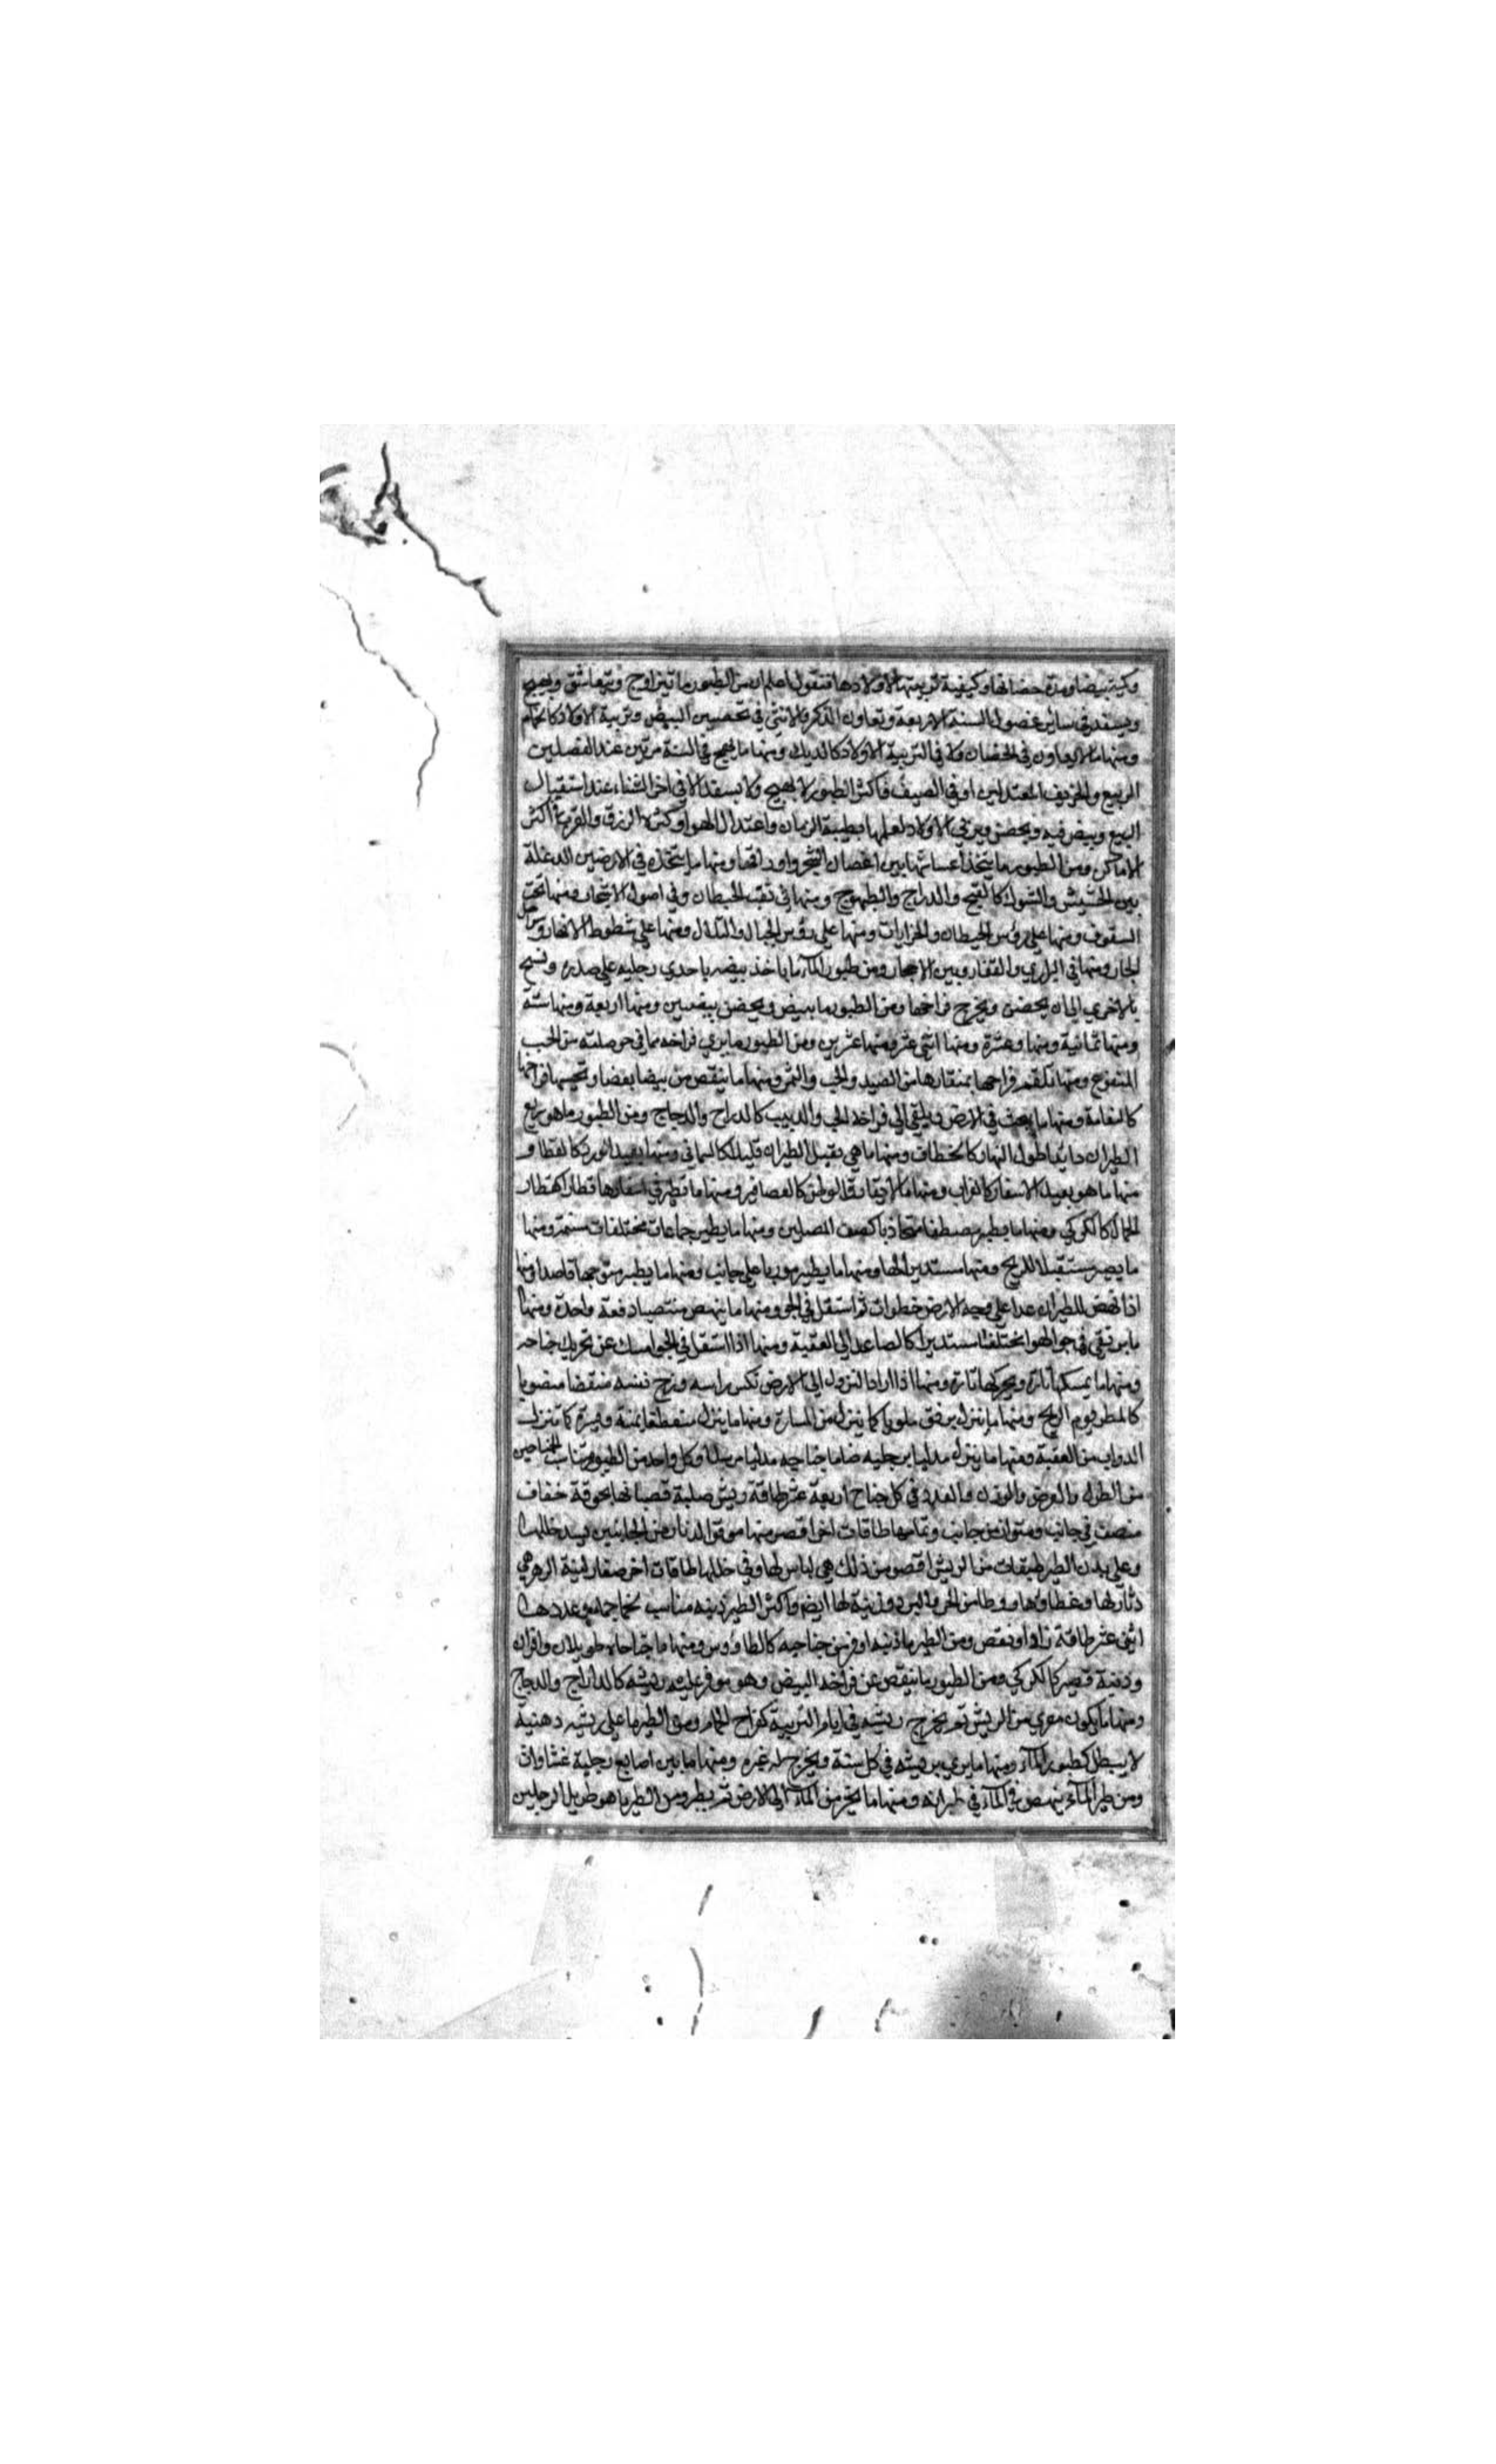 وكمية بيضها ومدة حضانها وكيفية تربيتها لاولادها فنقول اعلم ان من الطيور ما يتزاوج ويتعاشق ويهيج
ويسفد في ساير فصول السنة الاربعة وتعاون الذكر والانثى في تحضين البيض وتربية الاولاد كالحمام
ومنها ما لا يعاون في الحضان ولا في التربية الاولاد كالديك ومنها ما يهيج في السنة مرتين عند الفصلين
الربيع والخريف المعتدلين او في الصيف فاكثر الطيور لا يهيج ولا يسفد الا في اخر الشتاء عند استقبال
الربيع ويبيض فيه ويحضن ويربي الاولاد لعلمها بطيبة الزمان واعتدال الهوا وكثرة الرزق والقوت في اكثر
الاماكن ومن الطيور ما يتخذ اعشاشها بين اغصان الشجر واوراقها ومنها ما يتخذه في الارضين الدغلة
بين الحشيش والشوك كالقبج والدراج والطيهوج ومنها في ثقب الحيطان وفي اصول الاشجار ومنها تحت
السقوف ومنها على رؤس الحيطان والخرابات ومنها على رؤس الجبال والتلال ومنها على شطوط الانهار وسواحل
البحار ومنها في البراري والقفار وبين الاحجار ومن طيور الماء ما ياخذ بيضه باحدى رجليه على صدره ويسبح
بالاخرى الى ان يحضن ويخرج فراخها ومن الطيور ما يبيض ويحضن بيضتين ومنها اربعة ومنها ستة
ومنها ثمانية ومنها وعشرة ومنها اثنى عشر ومنها عشرين ومن الطيور ما يربي فراخه بما في حوصلته من الحب
المنقوع ومنها تلقم فراخها بمنقارها من الصيد والحب والثمر ومنها ما ينقص من بيضها بعضا وتحسيها فراخها
كالنعامة ومنها ما يبحث في الارض ويلقي الى فراخه الحب والدبيب كالدراج والدجاج ومن الطيور ما هو سريع
الطيران دائما طول النهار كالخطاف ومنها ما هي ثقيل الطيران قليله كالسماني ومنها بعيد الورد كالقطا و
منها ما هو بعيد الاسفار كالغراب ومنها ما لا يفارق الوطن كالعصافير ومنها ما يطير في اسفارها قطارا كقطار
الجمال كالكركي ومنها ما يطير مصطفا متحاذيا كصف المصلين ومنها ما يطير جماعات مختلفات مستمرة ومنها
ما يصير مستقبلا للريح ومنها مستديرا لها ومنها ما يطير موربا على جانب ومنها ما يطير متوجها قاصدا ومنها
اذا نهض للطيران عدا على وجه الارض خطوات ثم استقل في الجو ومنها ما ينهض منتصبا دفعة واحدة ومنها
ما يرتقي في جو الهوا مختلفا مستديرا كالصاعد الى العقبة ومنها اذا استقل في الجو امسك عن تحريك جناحه
ومنها ما يمسكها تارة ويحركها تارة ومنها اذا اراد النزول الى الارض نكس راسه وزج نفسه منقضا منصوبا
كالمطر يوم الريح ومنها ما ينزل برفق ملويا كما ينزل من المنارة ومنها ما ينزل منعطفا يمنة ويسرة كما تنزل
الدواب من العقبة ومنها ما ينزل مدليا برجليه ضاما جناحيه مدليا مرسلا وكل واحد من الطيور متناسب الجناحين
من الطول والعرض والوزن والعدد في كل جناح اربعة عشر طاقة ريش صلبة قصبانها مجوفة خفاف
منصف في جانب ومتوازن من جانب وتمامها طاقات اخر اقصر منها من الجانبين يسد خللها
وعلى بدن الطير طبقات من الريش اقصر من ذلك هي لباس لها وفي خللها طاقات اخر صغار لينة الزهر هي
دثار لها وغطا وها ووطا من الحر والبرد وزينة لها ايضا واكثر الطير ذنبه مناسب وعددها
اثنى عشر طاقة زاد او نقص ومن الطير ما ذنبه اوفر من جناحيه كالطاووس ومنها ما جناحاه طويلان وافران
وذنبه قصير كالكركي ومن الطيور ما ينقص عن فراخه البيض وهو موفر عليه ريشه كالدراج والدجاج
ومنها ما يكون معرى من الريش ثم يخرج ريشه في ايام التربية كفراخ الحمام ومن الطير ما على ريشه دهنية
لا يبتل كطيور الماء ومنها ما يرمي بريشه في كل سنة ويخرج له غيره ومنها ما بين اصابع رجليه غشاوات
ومن طير الماء ينهض في الماء في طيرانه ومنها ما يخرج من الماء الى الارض ثم يطير ومن الطير ما هو طويل الرجلين